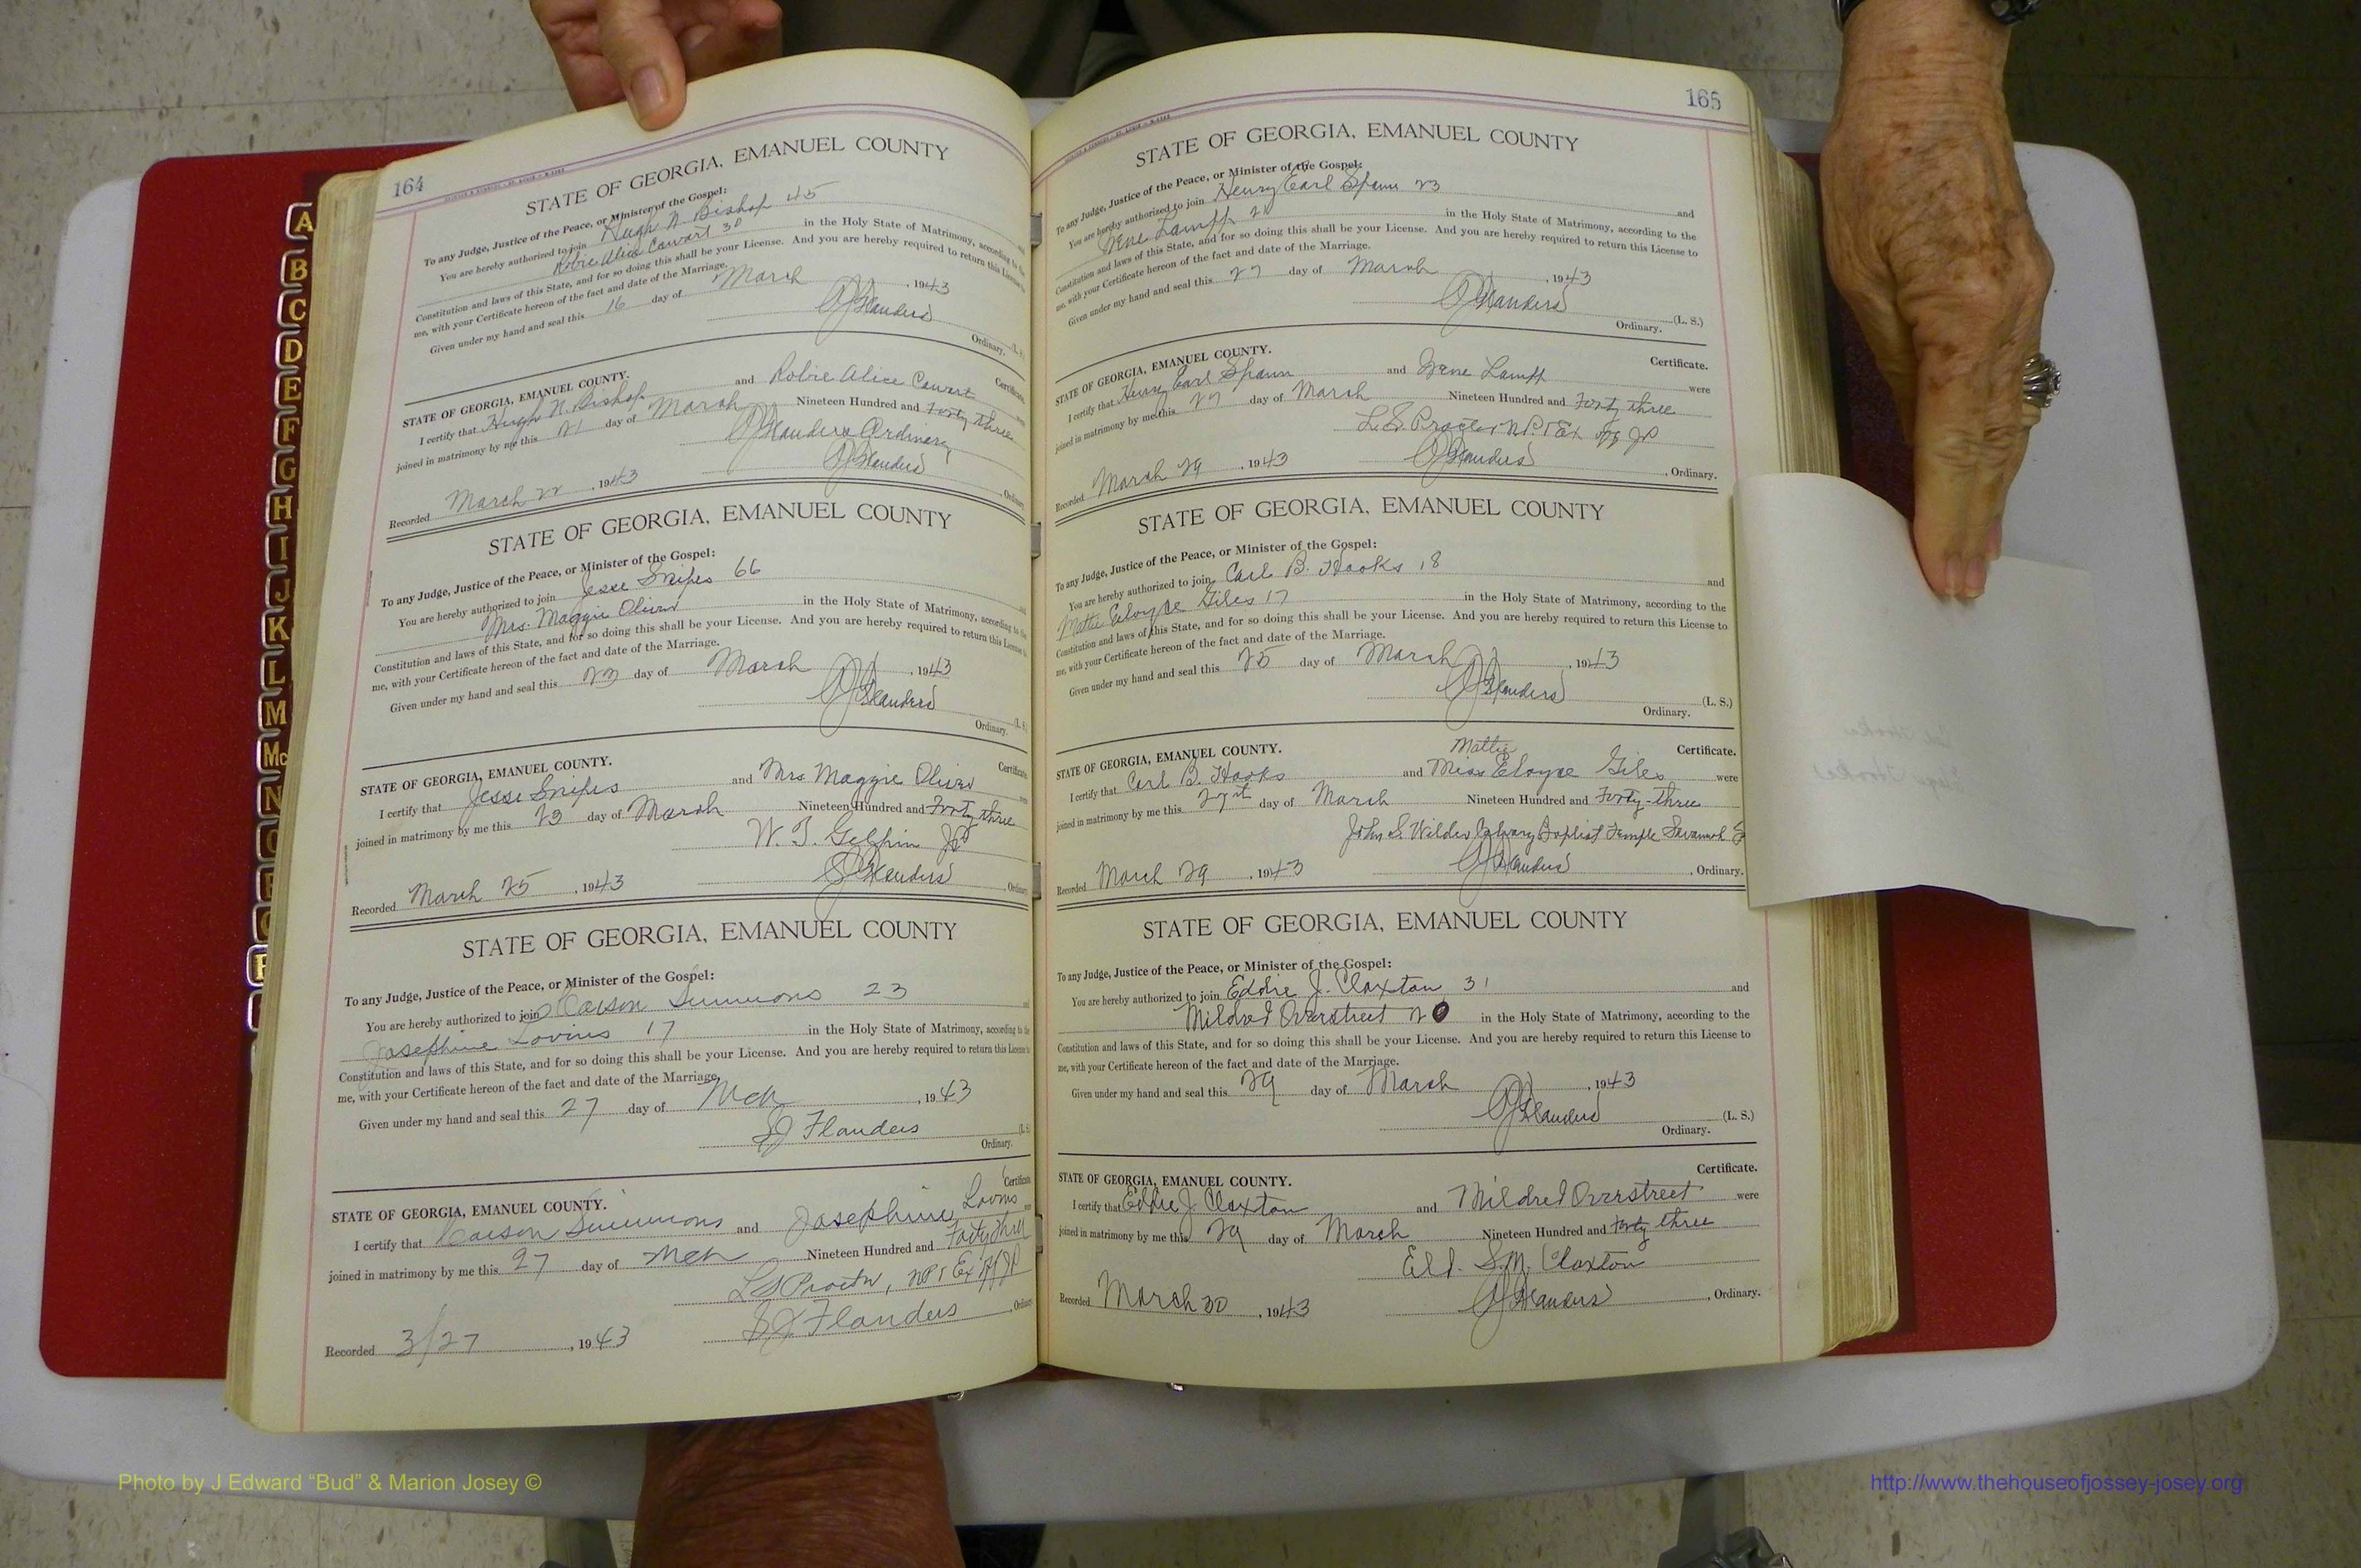 164
STATE OF GEORGIA, EMANUEL COUNTY
To any Judge, Justice of the Peace, or Minister of the Gospel:
You are hereby authorized to join Hugh N. Bishop 45
Robie Alice Cowart 30 in the Holy State of Matrimony, according to the
Constitution and laws of this State, and for so doing this shall be your License. And you are hereby required to return this License
me, with your Certificate hereon of the fact and date of the Marriage.
Given under my hand and seal this 16 day of March, 1943
Flanders (L. S.
Ordinary.
STATE OF GEORGIA, EMANUEL COUNTY. Certificate.
I certify that Hugh N. Bishop and Robie Alice Cowart
joined in matrimony by me this 21 day of March Nineteen Hundred and Forty three
Flanders Ordinary
Recorded March 22, 1943 Flanders, Ordinary
STATE OF GEORGIA, EMANUEL COUNTY
To any Judge, Justice of the Peace, or Minister of the Gospel:
You are hereby authorized to join Jesse Snipes 66
Mrs. Maggie Oliver in the Holy State of Matrimony, according to the
Constitution and laws of this State, and for so doing this shall be your License. And you are hereby required to return this License
me, with your Certificate hereon of the fact and date of the Marriage.
Given under my hand and seal this 23 day of March, 1943
Flanders (L. S.
Ordinary.
STATE OF GEORGIA, EMANUEL COUNTY. Certificate.
I certify that Jesse Snipes and Mrs Maggie Oliver
joined in matrimony by me this 23 day of March Nineteen Hundred and Forty three
JP
Recorded March 25, 1943 Flanders, Ordinary
STATE OF GEORGIA, EMANUEL COUNTY
To any Judge, Justice of the Peace, or Minister of the Gospel:
You are hereby authorized to join Carson Simmons 23
Josephine 17 in the Holy State of Matrimony, according to the
Constitution and laws of this State, and for so doing this shall be your License. And you are hereby required to return this License
me, with your Certificate hereon of the fact and date of the Marriage.
Given under my hand and seal this 27 day of Mch, 1943
Flanders (L. S.
Ordinary.
STATE OF GEORGIA, EMANUEL COUNTY. Certificate.
I certify that Carson Simmons and Josephine
joined in matrimony by me this 27 day of Mch Nineteen Hundred and Forty three
L S Proctor, NP
Recorded 3/27, 1943 Flanders, Ordinary
165
STATE OF GEORGIA, EMANUEL COUNTY
To any Judge, Justice of the Peace, or Minister of the Gospel:
You are hereby authorized to join Henry Earl Spann 23 and
Lampp 21 in the Holy State of Matrimony, according to the
Constitution and laws of this State, and for so doing this shall be your License. And you are hereby required to return this License to
me, with your Certificate hereon of the fact and date of the Marriage.
Given under my hand and seal this 27 day of March, 1943
Flanders (L. S.)
Ordinary.
STATE OF GEORGIA, EMANUEL COUNTY. Certificate.
I certify that Henry Earl Spann and Lampp were
joined in matrimony by me this 27 day of March Nineteen Hundred and Forty three
L. S. Proctor N.P. & Ex Off JP
Recorded March 29, 1943 Flanders, Ordinary.
STATE OF GEORGIA, EMANUEL COUNTY
To any Judge, Justice of the Peace, or Minister of the Gospel:
You are hereby authorized to join Carl B. Hooks 18 and
Mattie Eloyce Giles 17 in the Holy State of Matrimony, according to the
Constitution and laws of this State, and for so doing this shall be your License. And you are hereby required to return this License to
me, with your Certificate hereon of the fact and date of the Marriage.
Given under my hand and seal this 25 day of March, 1943
Flanders (L. S.)
Ordinary.
STATE OF GEORGIA, EMANUEL COUNTY. Mattie Certificate.
I certify that Carl B. Hooks and Miss Eloyce Giles were
joined in matrimony by me this 27th day of March Nineteen Hundred and Forty-three
John S. Wilder Calvary Baptist Temple Savannah
Recorded March 29, 1943 Flanders, Ordinary.
STATE OF GEORGIA, EMANUEL COUNTY
To any Judge, Justice of the Peace, or Minister of the Gospel:
You are hereby authorized to join Eddie J. Claxton 31 and
Mildred Overstreet 20 in the Holy State of Matrimony, according to the
Constitution and laws of this State, and for so doing this shall be your License. And you are hereby required to return this License to
me, with your Certificate hereon of the fact and date of the Marriage.
Given under my hand and seal this 29 day of March, 1943
Flanders (L. S.)
Ordinary.
STATE OF GEORGIA, EMANUEL COUNTY. Certificate.
I certify that Eddie J. Claxton and Mildred Overstreet were
joined in matrimony by me this 29 day of March Nineteen Hundred and Forty three
Eld. S.M. Claxton
Recorded March 30, 1943 Flanders, Ordinary.
A
B
C
D
E
F
G
H
I
J
K
L
M
Mc
N
O
P
Q
Photo by J Edward “Bud” & Marion Josey ©
http://www.thehouseofjossey-josey.org